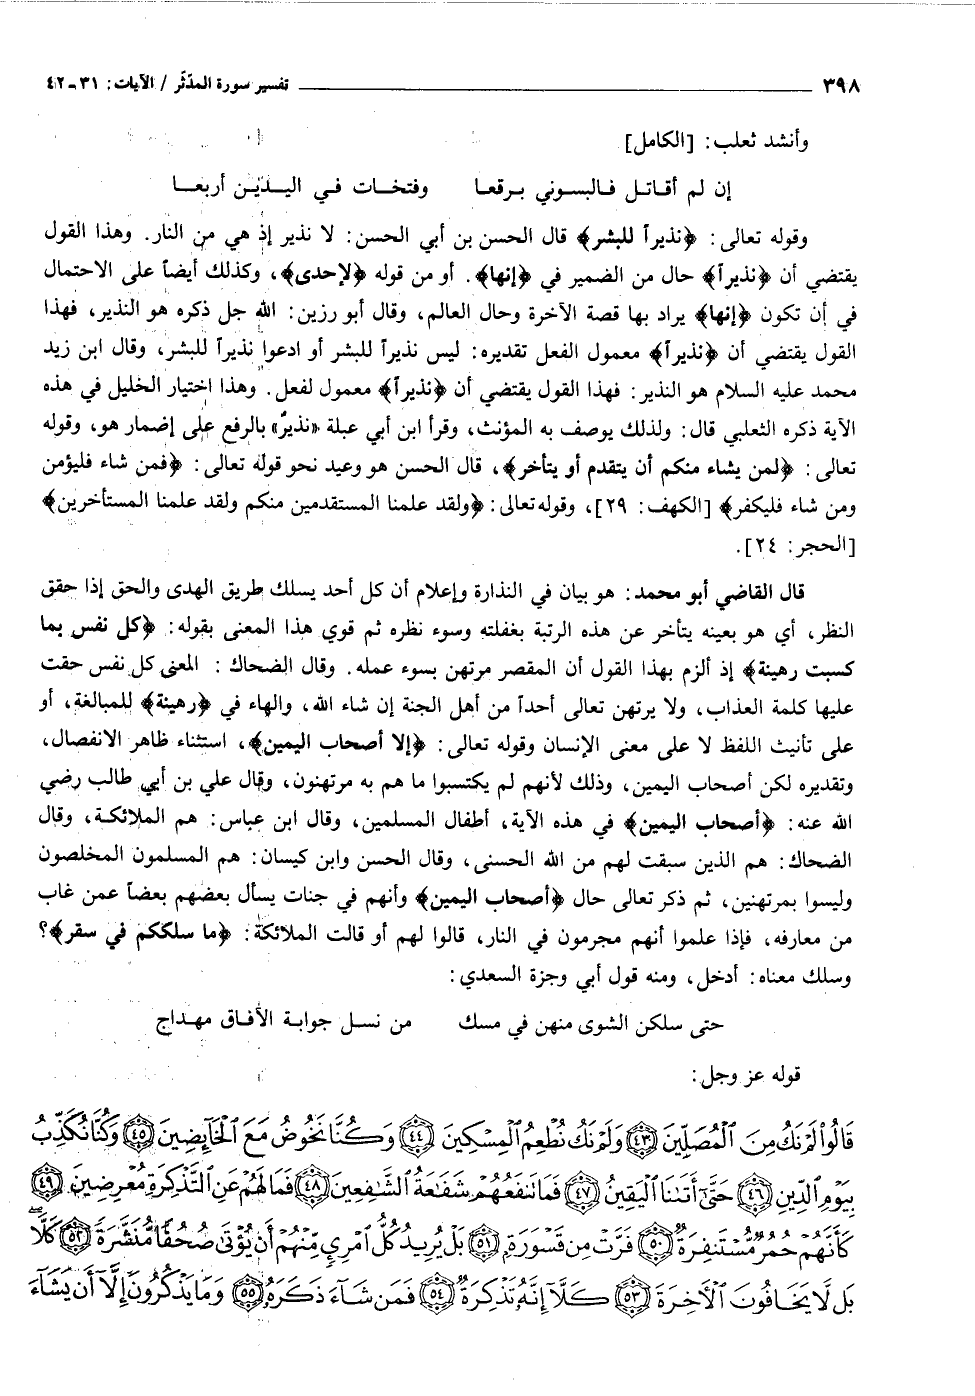 ٣٩٨ ــــــــــــــــــــ تفسير سورة المدّثر / الآيات: ٣١-٤٢
وأنشد ثعلب: [الكامل]
إن لم أقاتل فالبسوني برقعا وفتخات في اليدين أربعا
وقوله تعالى: ﴿نذيراً للبشر﴾ قال الحسن بن أبي الحسن: لا نذير إذ هي من النار. وهذا القول
يقتضي أن ﴿نذيراً﴾ حال من الضمير في ﴿إنها﴾. أو من قوله ﴿لإحدى﴾، وكذلك أيضاً على الاحتمال
في أن تكون ﴿إنها﴾ يراد بها قصة الآخرة وحال العالم، وقال أبو رزين: الله جل ذكره هو النذير، فهذا
القول يقتضي أن ﴿نذيراً﴾ معمول الفعل تقديره: ليس نذيراً للبشر أو ادعوا نذيراً للبشر، وقال ابن زيد
محمد عليه السلام هو النذير: فهذا القول يقتضي أن ﴿نذيراً﴾ معمول لفعل. وهذا اختيار الخليل في هذه
الآية ذكره الثعلبي قال: ولذلك يوصف به المؤنث، وقرأ ابن أبي عبلة «نذيرٌ» بالرفع على إضمار هو، وقوله
تعالى: ﴿لمن يشاء منكم أن يتقدم أو يتأخر﴾، قال الحسن هو وعيد نحو قوله تعالى: ﴿فمن شاء فليؤمن
ومن شاء فليكفر﴾ [الكهف: ٢٩]، وقوله تعالى: ﴿ولقد علمنا المستقدمين منكم ولقد علمنا المستأخرين﴾
[الحجر: ٢٤].
قال القاضي أبو محمد: هو بيان في النذارة وإعلام أن كل أحد يسلك طريق الهدى والحق إذا حقق
النظر، أي هو بعينه يتأخر عن هذه الرتبة بغفلته وسوء نظره ثم قوي هذا المعنى بقوله: ﴿كل نفس بما
كسبت رهينة﴾ إذ ألزم بهذا القول أن المقصر مرتهن بسوء عمله. وقال الضحاك: المعنى كل نفس حقت
عليها كلمة العذاب، ولا يرتهن تعالى أحداً من أهل الجنة إن شاء الله، والهاء في ﴿رهينة﴾ للمبالغة، أو
على تأنيث اللفظ لا على معنى الإنسان وقوله تعالى: ﴿إلا أصحاب اليمين﴾، استثناء ظاهر الانفصال،
وتقديره لكن أصحاب اليمين، وذلك لأنهم لم يكتسبوا ما هم به مرتهنون، وقال علي بن أبي طالب رضي
الله عنه: ﴿أصحاب اليمين﴾ في هذه الآية، أطفال المسلمين، وقال ابن عباس: هم الملائكة، وقال
الضحاك: هم الذين سبقت لهم من الله الحسنى، وقال الحسن وابن كيسان: هم المسلمون المخلصون
وليسوا بمرتهنين، ثم ذكر تعالى حال ﴿أصحاب اليمين﴾ وأنهم في جنات يسأل بعضهم بعضاً عمن غاب
من معارفه، فإذا علموا أنهم مجرمون في النار، قالوا لهم أو قالت الملائكة: ﴿ما سلككم في سقر﴾؟
وسلك معناه: أدخل، ومنه قول أبي وجزة السعدي:
حتى سلكن الشوى منهن في مسك من نسل جوابة الأفاق مهداج
قوله عز وجل:
قَالُوا لَمْ نَكُ مِنَ الْمُصَلِّينَ ﴿٤٣﴾ وَلَمْ نَكُ نُطْعِمُ الْمِسْكِينَ ﴿٤٤﴾ وَكُنَّا نَخُوضُ مَعَ الْخَائِضِينَ ﴿٤٥﴾ وَكُنَّا نُكَذِّبُ
بِيَوْمِ الدِّينِ ﴿٤٦﴾ حَتَّىٰ أَتَانَا الْيَقِينُ ﴿٤٧﴾ فَمَا تَنفَعُهُمْ شَفَاعَةُ الشَّافِعِينَ ﴿٤٨﴾ فَمَا لَهُمْ عَنِ التَّذْكِرَةِ مُعْرِضِينَ ﴿٤٩﴾
كَأَنَّهُمْ حُمُرٌ مُّسْتَنفِرَةٌ ﴿٥٠﴾ فَرَّتْ مِن قَسْوَرَةٍ ﴿٥١﴾ بَلْ يُرِيدُ كُلُّ امْرِئٍ مِّنْهُمْ أَن يُؤْتَىٰ صُحُفًا مُّنَشَّرَةً ﴿٥٢﴾ كَلَّا
بَل لَّا يَخَافُونَ الْآخِرَةَ ﴿٥٣﴾ كَلَّا إِنَّهُ تَذْكِرَةٌ ﴿٥٤﴾ فَمَن شَاءَ ذَكَرَهُ ﴿٥٥﴾ وَمَا يَذْكُرُونَ إِلَّا أَن يَشَاءَ